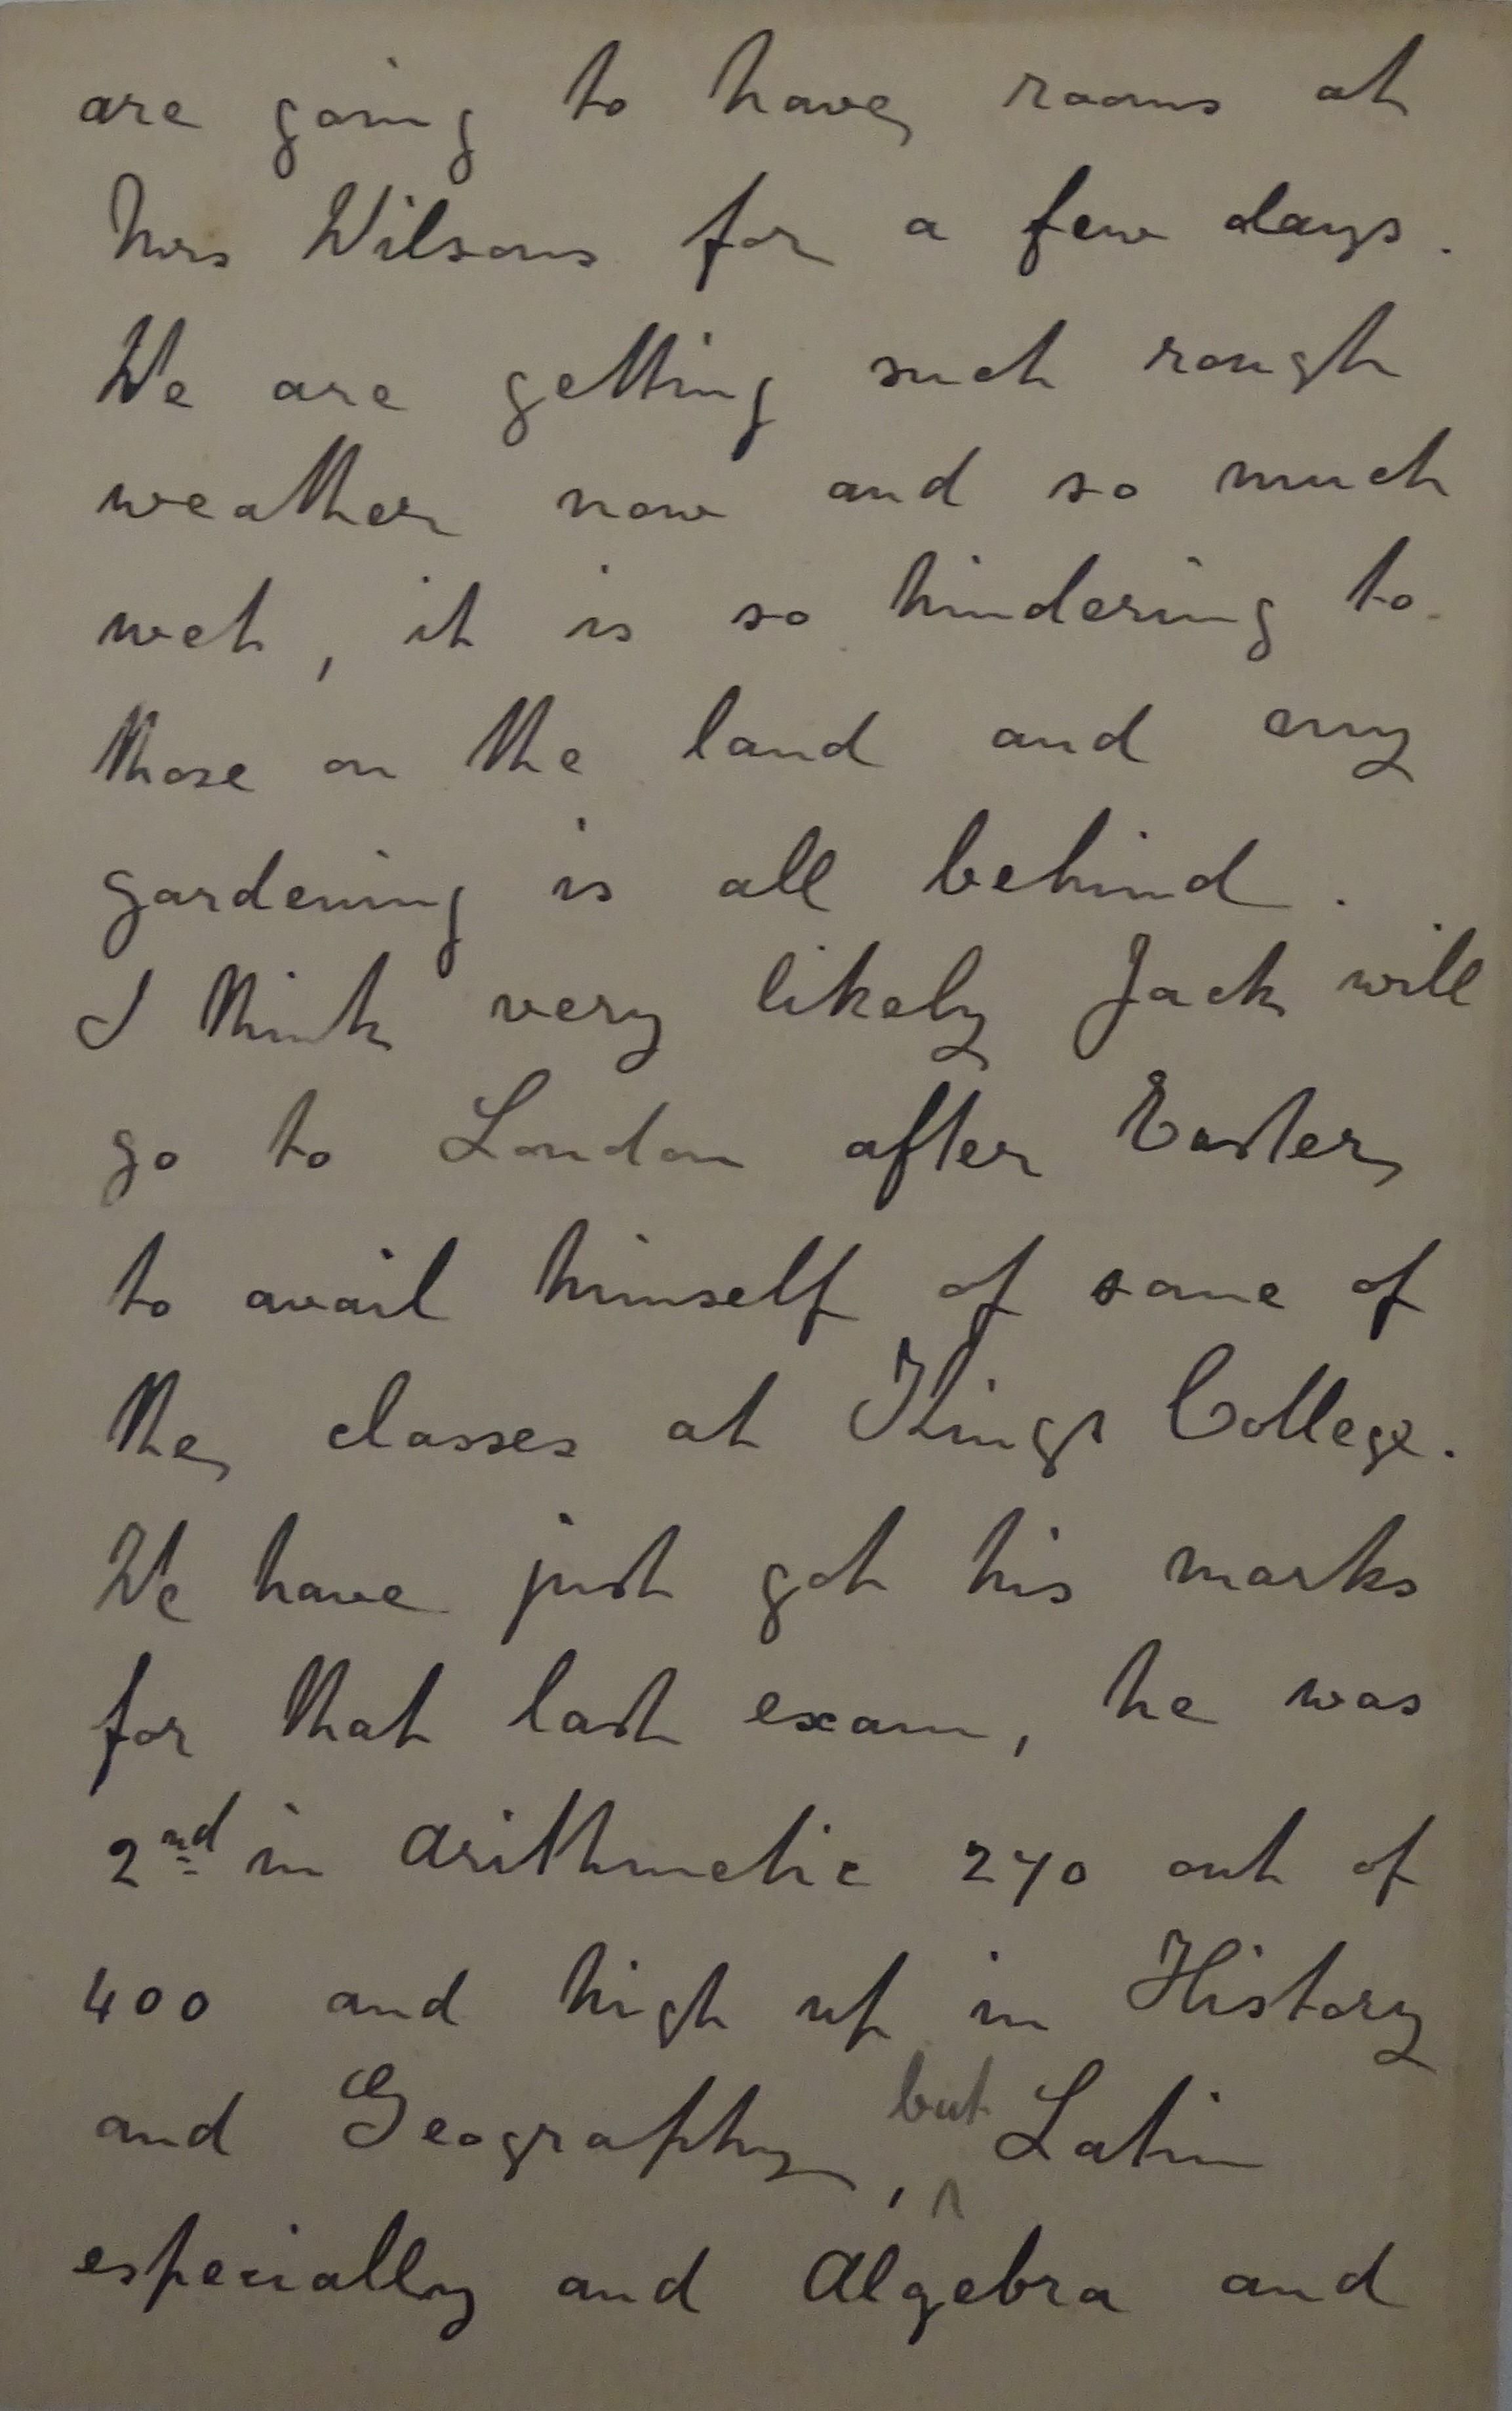 are going to have rooms at
Mrs Wilsons for a few days.
We are getting such rough
weather now and so much
wet, it is so hindering to
those on the land and my
gardening is all behind.
I think very likely Jack will
go to London after Easter
to avail himself of some of
the classes at Kings College.
We have just got his marks
for that last exam, he was
2nd in arithmetic 270 out of
400 and high up in History
and Geography, but Latin
especially and Algebra and